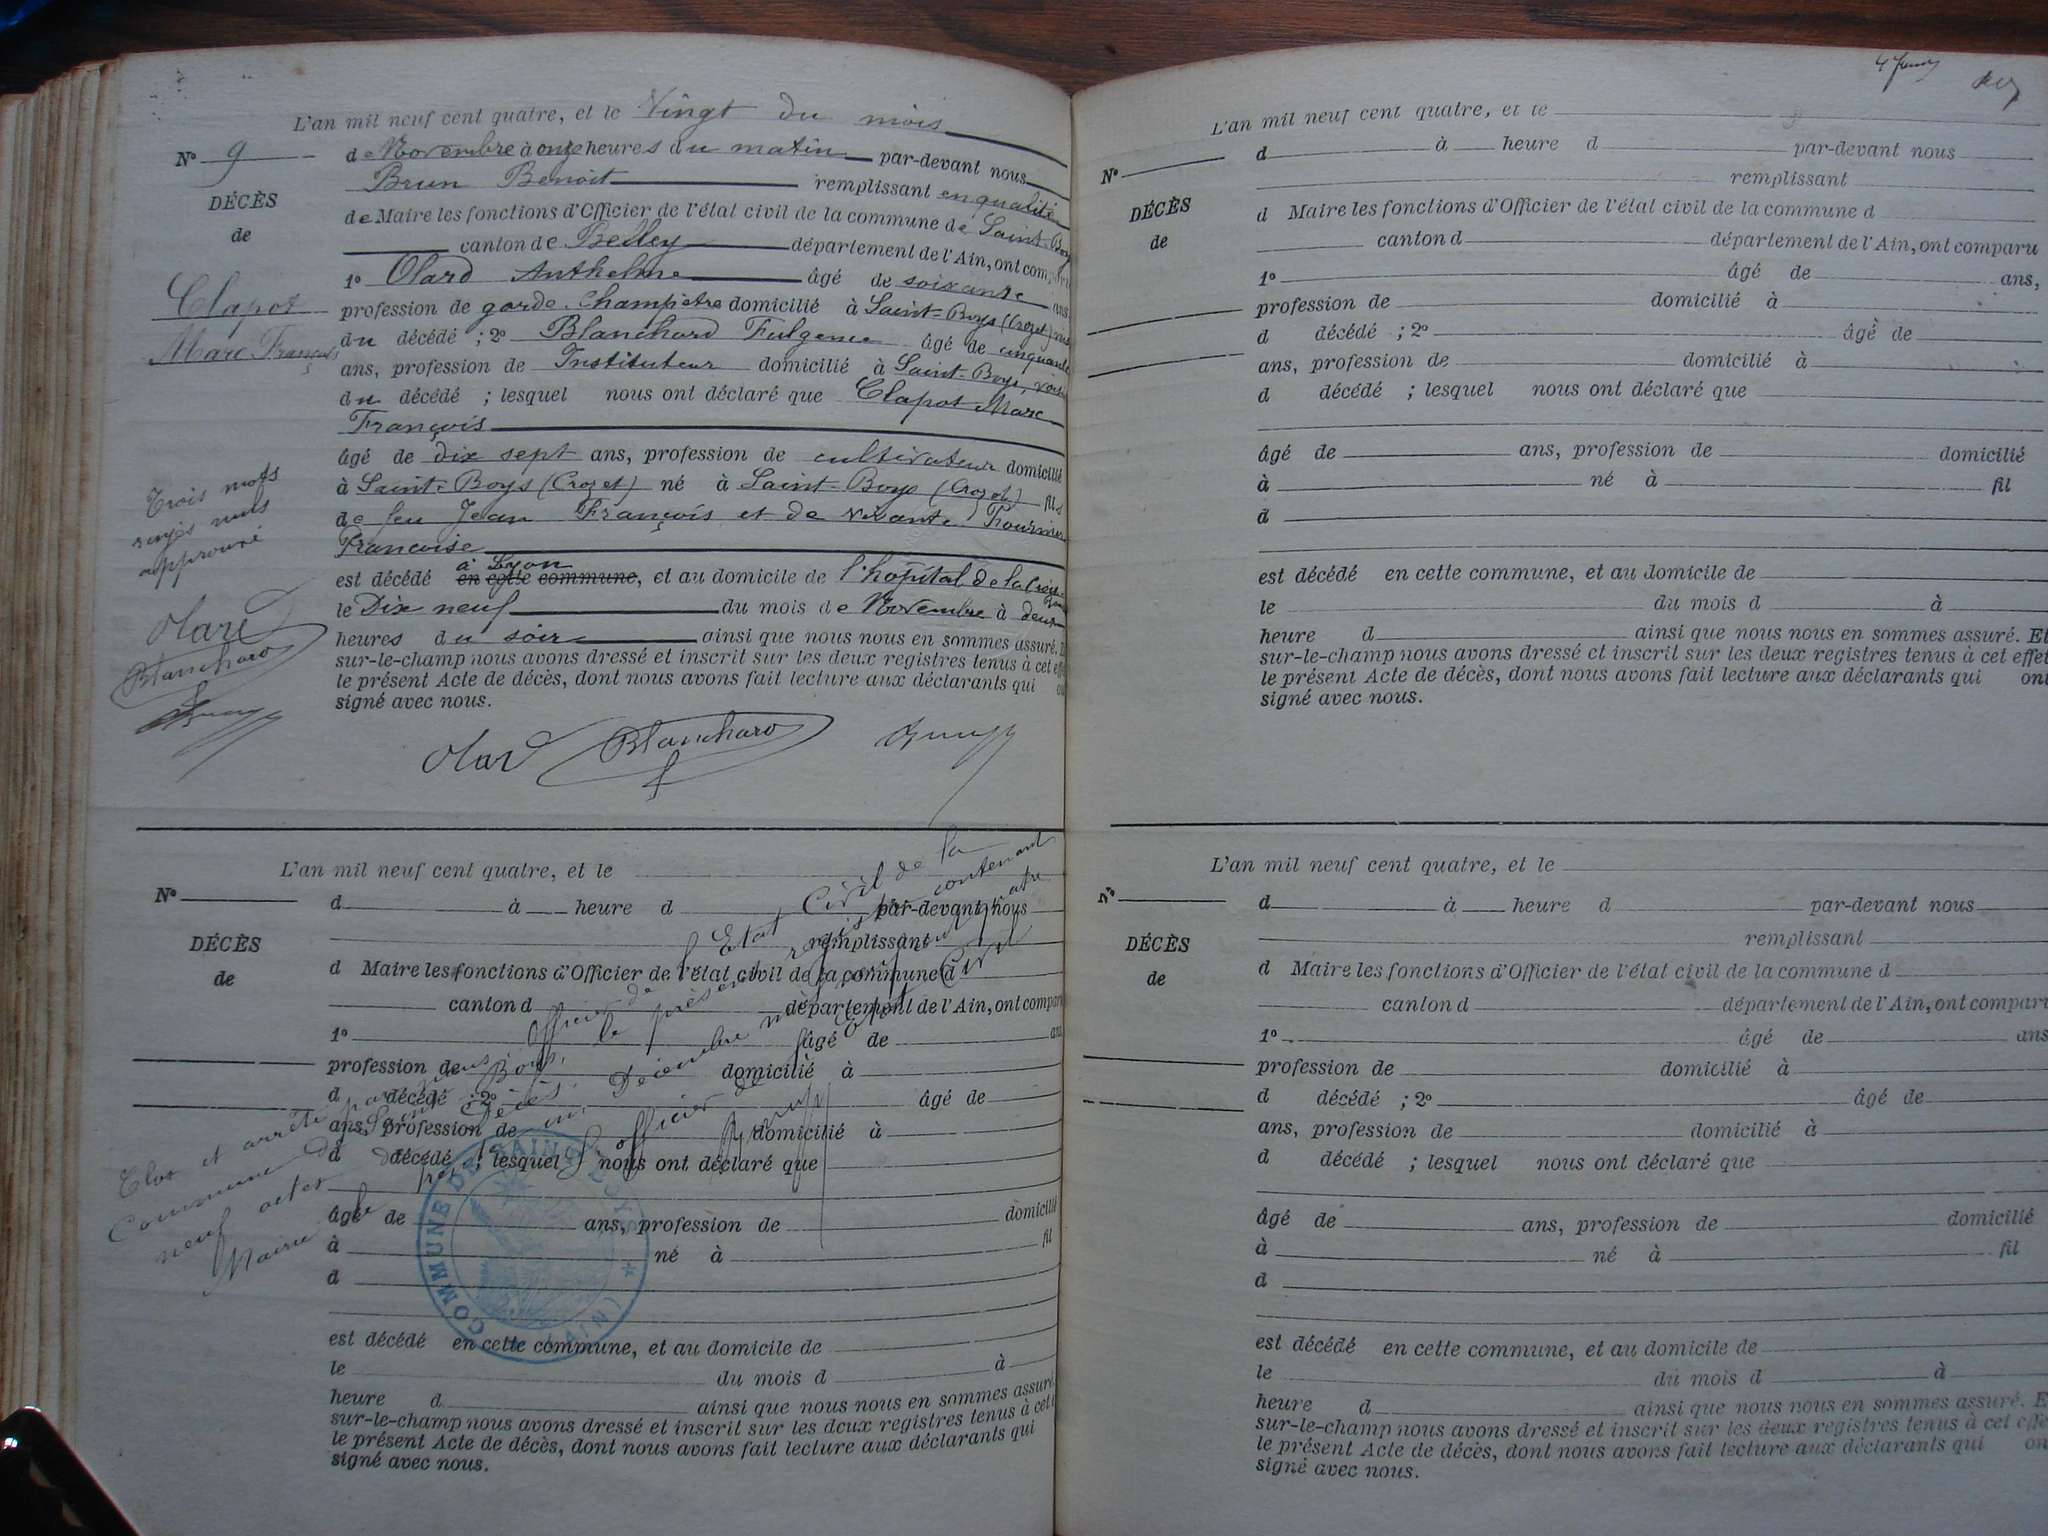 L'an mil neuf cent quatre, et le Vingt du mois
No 9 de Novembre à onze heures du matin par-devant nous
Brun Benoit remplissant en qualité
DÉCÈS
de Maire les fonctions d'Officier de l'état civil de la commune de Saint-Boys
de
canton de Belley département de l'Ain, ont comparu
1o Olard Anthelme âgé de soixante ans
Clapot
profession de garde-Champêtre domicilié à Saint-Boys (Crozet)
Marc François
du décédé ; 2o Blanchard Fulgence âgé de cinquante
ans, profession de Instituteur domicilié à Saint-Boys, voisin
du décédé ; lesquel nous ont déclaré que Clapot Marc
François
âgé de dix sept ans, profession de cultivateur domicilié
à Saint-Boys (Crozet) né à Saint-Boys (Crozet) fils
de feu Jean François et de vivante Fournier
Francoise
Trois mots
rayés nuls
approuvé
à Lyon
est décédé en cette commune, et au domicile de l'hôpital de la Croix
le Dix neuf du mois de Novembre à deux
heures du soir ainsi que nous nous en sommes assuré.
sur-le-champ nous avons dressé et inscrit sur les deux registres tenus à cet effet
le présent Acte de décès, dont nous avons fait lecture aux déclarants qui
signé avec nous.
Olard
Blanchard
Brun
Olard Blanchard Brun
L'an mil neuf cent quatre, et le
No
d à heure d par-devant nous
remplissant
DÉCÈS
d Maire les fonctions d'Officier de l'état civil de la commune d
de
canton d département de l'Ain, ont comparu
1o âgé de ans
profession de domicilié à
d décédé ; 2o âgé de
ans, profession de domicilié à
d décédé ; lesquel nous ont déclaré que
âgé de ans, profession de domicilié
à né à fil
d
est décédé en cette commune, et au domicile de
le du mois d à
heure d ainsi que nous nous en sommes assuré.
sur-le-champ nous avons dressé et inscrit sur les deux registres tenus à cet
le présent Acte de décès, dont nous avons fait lecture aux déclarants qui
signé avec nous.
Clos et arrêté par nous, Officier de l'Etat Civil de la
Commune de Saint-Boys, le présent registre contenant
neuf actes de décès.
Mairie le
L'officier de Etat Civil
Brun
COMMUNE DE SAINT-BOYS (AIN)
L'an mil neuf cent quatre, et le
No
d à heure d par-devant nous
remplissant
DÉCÈS
d Maire les fonctions d'Officier de l'état civil de la commune d
de
canton d département de l'Ain, ont comparu
1o âgé de ans,
profession de domicilié à
d décédé ; 2o âgé de
ans, profession de domicilié à
d décédé ; lesquel nous ont déclaré que
âgé de ans, profession de domicilié
à né à fil
d
est décédé en cette commune, et au domicile de
le du mois d à
heure d ainsi que nous nous en sommes assuré. Et
sur-le-champ nous avons dressé et inscrit sur les deux registres tenus à cet effet
le présent Acte de décès, dont nous avons fait lecture aux déclarants qui ont
signé avec nous.
L'an mil neuf cent quatre, et le
No
d à heure d par-devant nous
remplissant
DÉCÈS
d Maire les fonctions d'Officier de l'état civil de la commune d
de
canton d département de l'Ain, ont comparu
1o âgé de ans
profession de domicilié à
d décédé ; 2o âgé de
ans, profession de domicilié à
d décédé ; lesquel nous ont déclaré que
âgé de ans, profession de domicilié
à né à fil
d
est décédé en cette commune, et au domicile de
le du mois d à
heure d ainsi que nous nous en sommes assuré. E
sur-le-champ nous avons dressé et inscrit sur les deux registres tenus à cet effe
le présent Acte de décès, dont nous avons fait lecture aux déclarants qui on
signé avec nous.